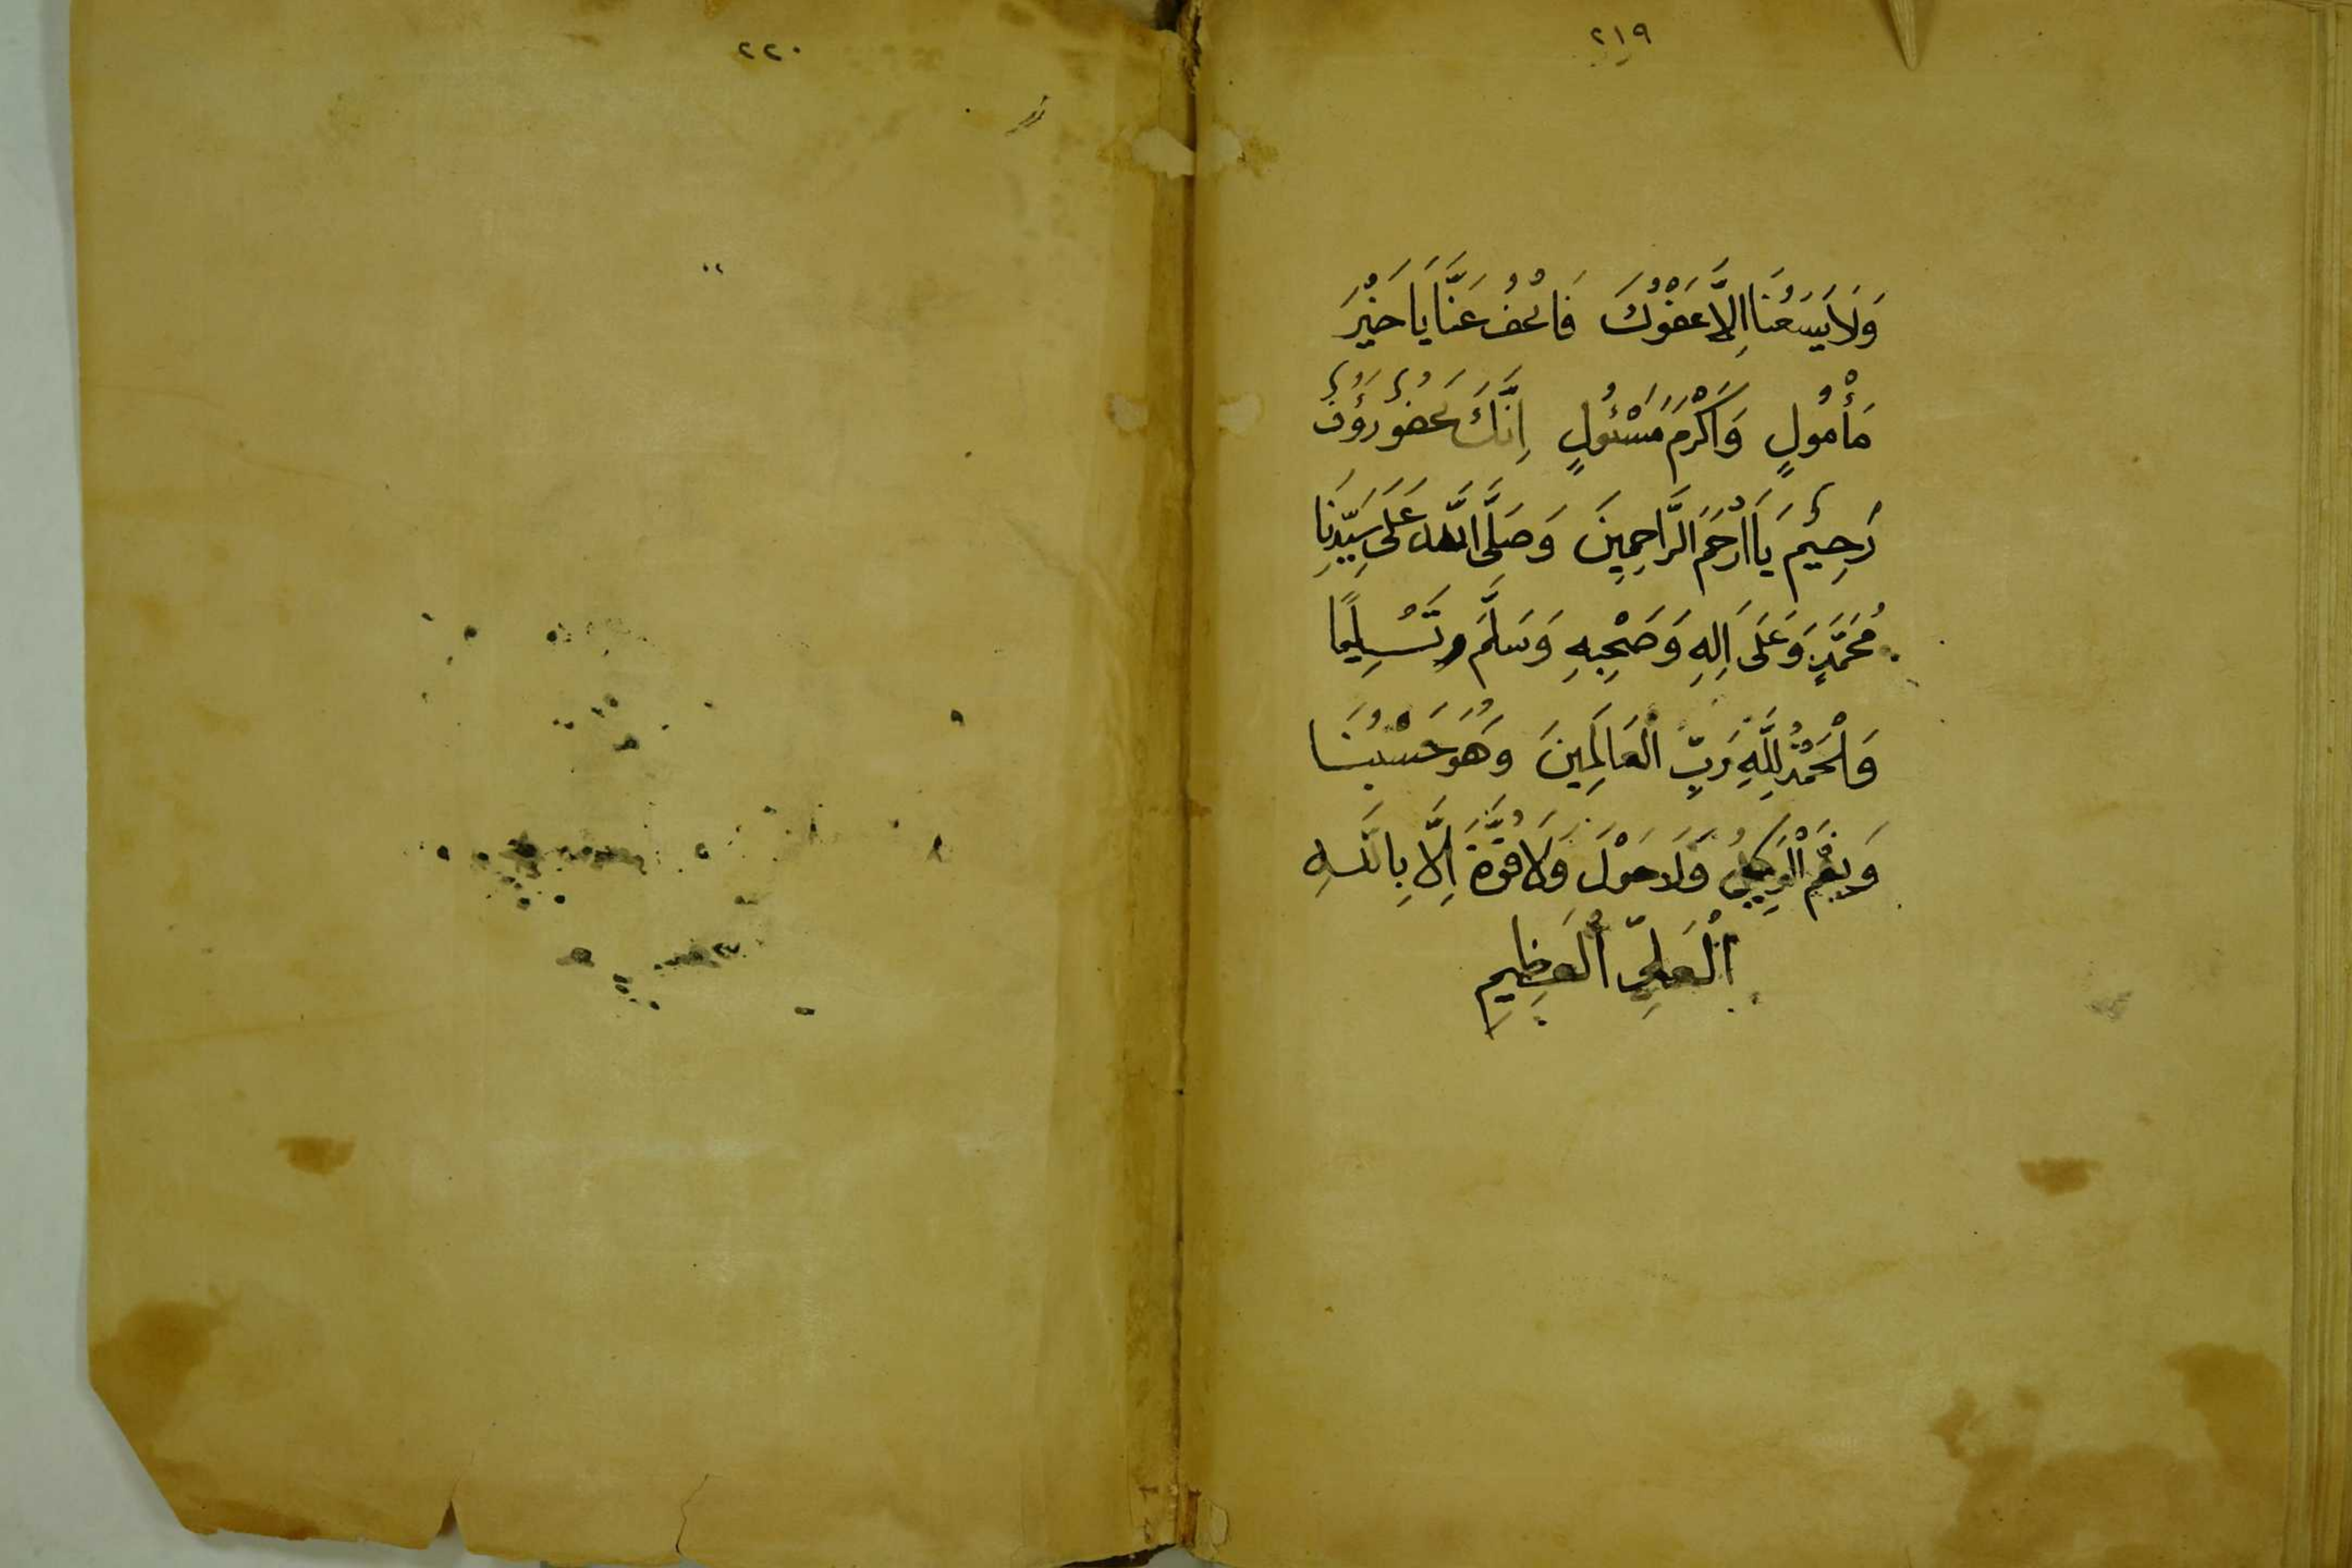 ٢١٩
وَلَا يَسَعُنَا اِلَّا عَفْوُكَ فَاعْفُ عَنَّا يَا خَيْرَ
مَأْمُولٍ وَاَكْرَمَ مَسْئُولٍ اِنَّكَ غَفُورٌ رَؤُفٌ
رَحِيْمٌ يَا اَرْحَمَ الرَّاحِمِينَ وَصَلَّى اللَّهُ عَلَى سَيِّدِنَا
مُحَمَّدٍ وَعَلَى اَلِهِ وَصَحْبِهِ وَسَلَّمَ تَسْلِيمًا
وَالْحَمْدُ لِلَّهِ رَبِّ الْعَالَمِينَ وَهُوَ حَسْبُنَا
وَنِعْمَ الْوَكِيلُ وَلَا حَوْلَ وَلَا قُوَّةَ اِلَّا بِاللَّهِ
الْعَلِىِّ الْعَظِيمِ
٢٢٠